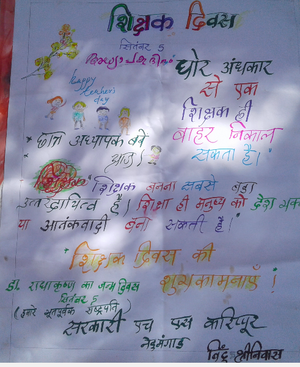 शिक्षक दिवस
सितंबर 5
घोर अंधकार
से एक
शिक्षक ही
बाहर निकाल
सकता है।
Happy
teachers
day
* छात्र अध्यापक बने
आज!
शिक्षक बनना सबसे बड़ा
उत्तरदायित्व है। शिक्षा ही मनुष्य को देश भक्त
या आतंकवादी बना सकती है।
शिक्षक दिवस की
शुभकामनाएँ!
डॉ राधाकृष्णन का जन्म दिवस
सितंबर 5
(हमारे भूतपूर्व राष्ट्रपति)
सरकारी एच एस करिप्पूर
नेडुमंगाड
श्रीनिवास